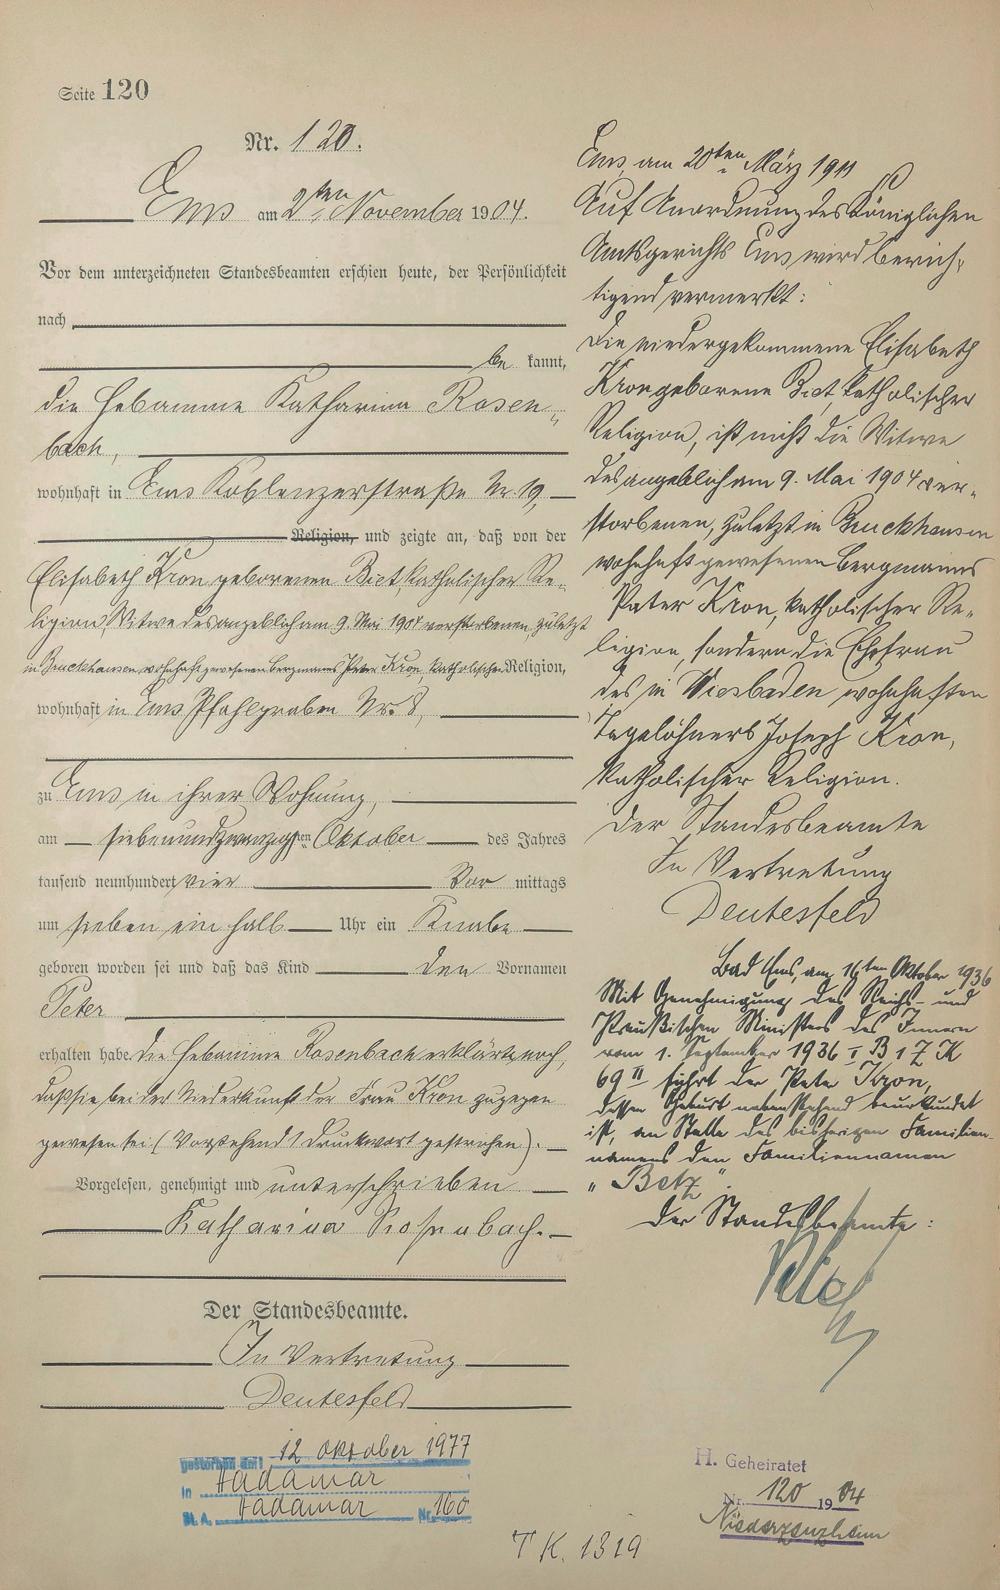 Seite 120
Nr. 120.
Ems am 2ten November 1904.
Vor dem unterzeichneten Standesbeamten erschien heute, der Persönlichkeit
nach
be kannt,
die Hebamme Katharina Rosen-
bach,
wohnhaft in Ems Koblenzerstraße Nr. 19,
Religion, und zeigte an, daß von der
Elisabeth Kron geborenen Bict, katholischer Re-
ligion, Witwe des angeblich am 9. Mai 1904 verstorbenen, zuletzt
in Bruckhausen wohnhaft gewesenen Bergmanns Peter Kron, katholischer Religion,
wohnhaft in Ems Pfahlgraben Nr. 8,
zu Ems in ihrer Wohnung,
am siebenundzwanzigsten Oktober des Jahres
tausend neunhundert vier Vor mittags
um sieben ein halb Uhr ein Knabe
geboren worden sei und daß das Kind den Vornamen
Peter
erhalten habe. Die Hebamme Rosenbach erklärte noch,
daß sie bei der Niederkunft der Frau Kron zugegen
gewesen sei. (Vorstehend 1 Druckwort gestrichen).
Vorgelesen, genehmigt und unterschrieben
Katharina Rosenbach.
Der Standesbeamte.
In Vertretung
Deutesfeld
gestorben am: 12 Oktober 1977
in Hadamar
St. A. Hadamar Nr. 160
Ems, am 20ten März 1911
Auf Anordnung des Königlichen
Amtsgerichts Ems wird berich-
tigend vermerkt:
Die niedergekommene Elisabeth
Kron geborene Bict, katholischer
Religion, ist nicht die Witwe
des angeblich am 9. Mai 1904 ver-
storbenen, zuletzt in Bruckhausen
wohnhaft gewesenen Bergmanns
Peter Kron, katholischer Re-
ligion, sondern die Ehefrau
des in Wiesbaden wohnhaften
Tagelöhners Joseph Kron,
katholischer Religion.
Der Standesbeamte
In Vertretung
Deutesfeld
Bad Ems, am ten Oktober 1936
Mit Genehmigung des Reichs- und
Preußischen Ministers des Innern
vom 1. September 1936 I B 1 Z K
69 II führt der Peter Kron,
dessen Geburt nebenstehend beurkundet
ist, an Stelle des bisherigen Familien-
namens den Familiennamen
"Betz".
Der Standesbeamte:
H. Geheiratet
Nr. 120 1904
Niederzeuzheim
T K. 1319